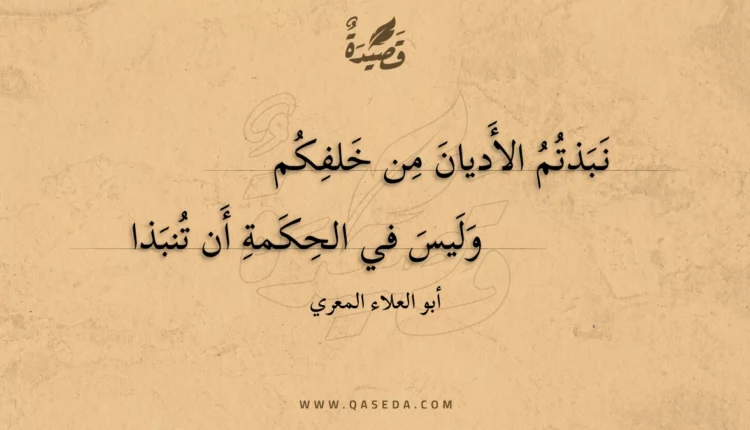 قَصِيدَةٌ
نَبَذتُمُ الأَديانَ مِن خَلفِكُم
وَلَيسَ في الحِكمَةِ أَن تُنبَذا
أبو العلاء المعري
WWW.QASEDA.COM